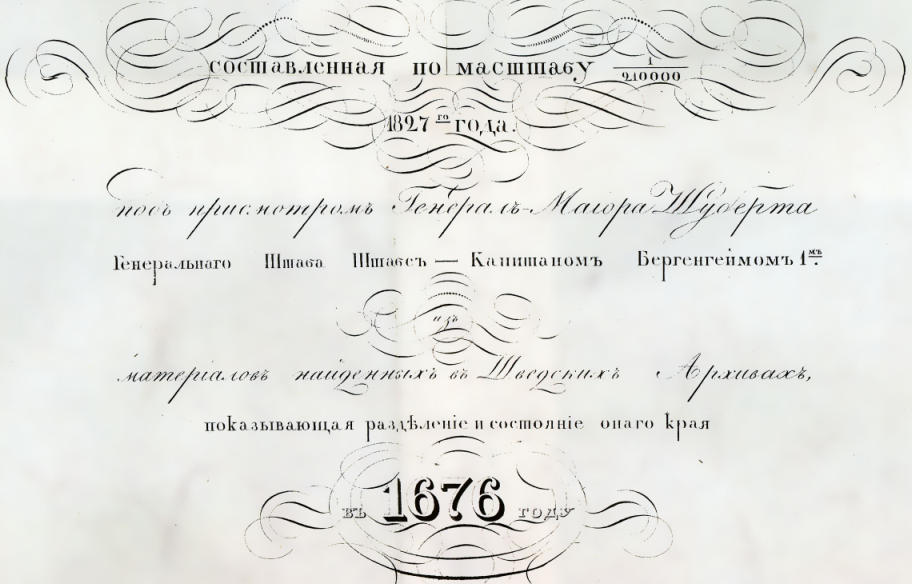 составленная по масштабу 1/210000
1827го года.
подъ присмотромъ Генералъ-Маіора Шуберта
Генеральнаго Штаба Штабсъ — Капитаномъ Бергенгеймомъ 1мъ.
изъ
матеріаловъ найденныхъ въ Шведскихъ Архивахъ,
показывающая раздѣленіе и состояніе онаго края
въ 1676 году